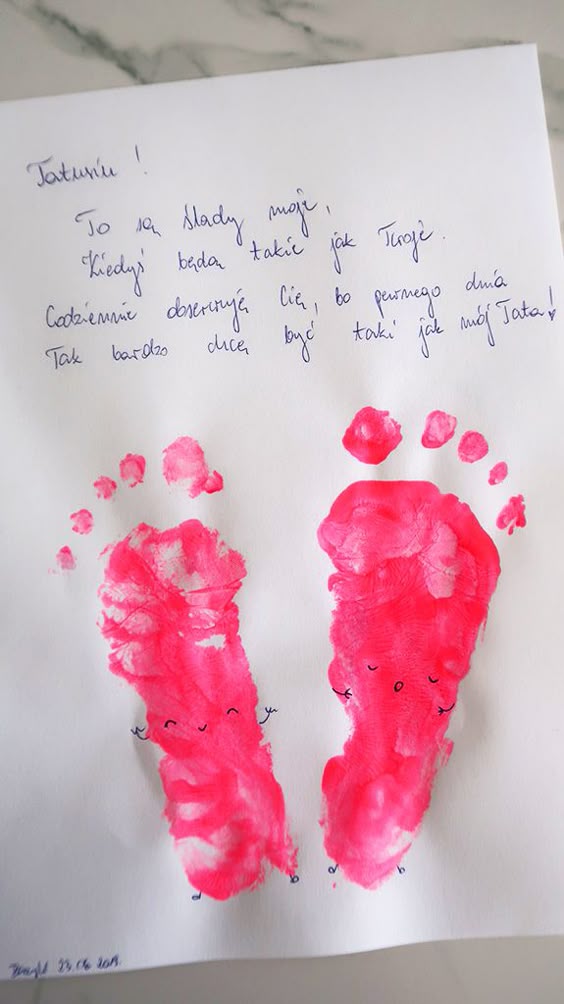 Tatusiu !
To są ślady moje,
Kiedyś będą takie jak Twoje.
Codziennie obserwuję Cię, bo pewnego dnia
Tak bardzo chcę być taki jak mój Tata!
23.06.2019.